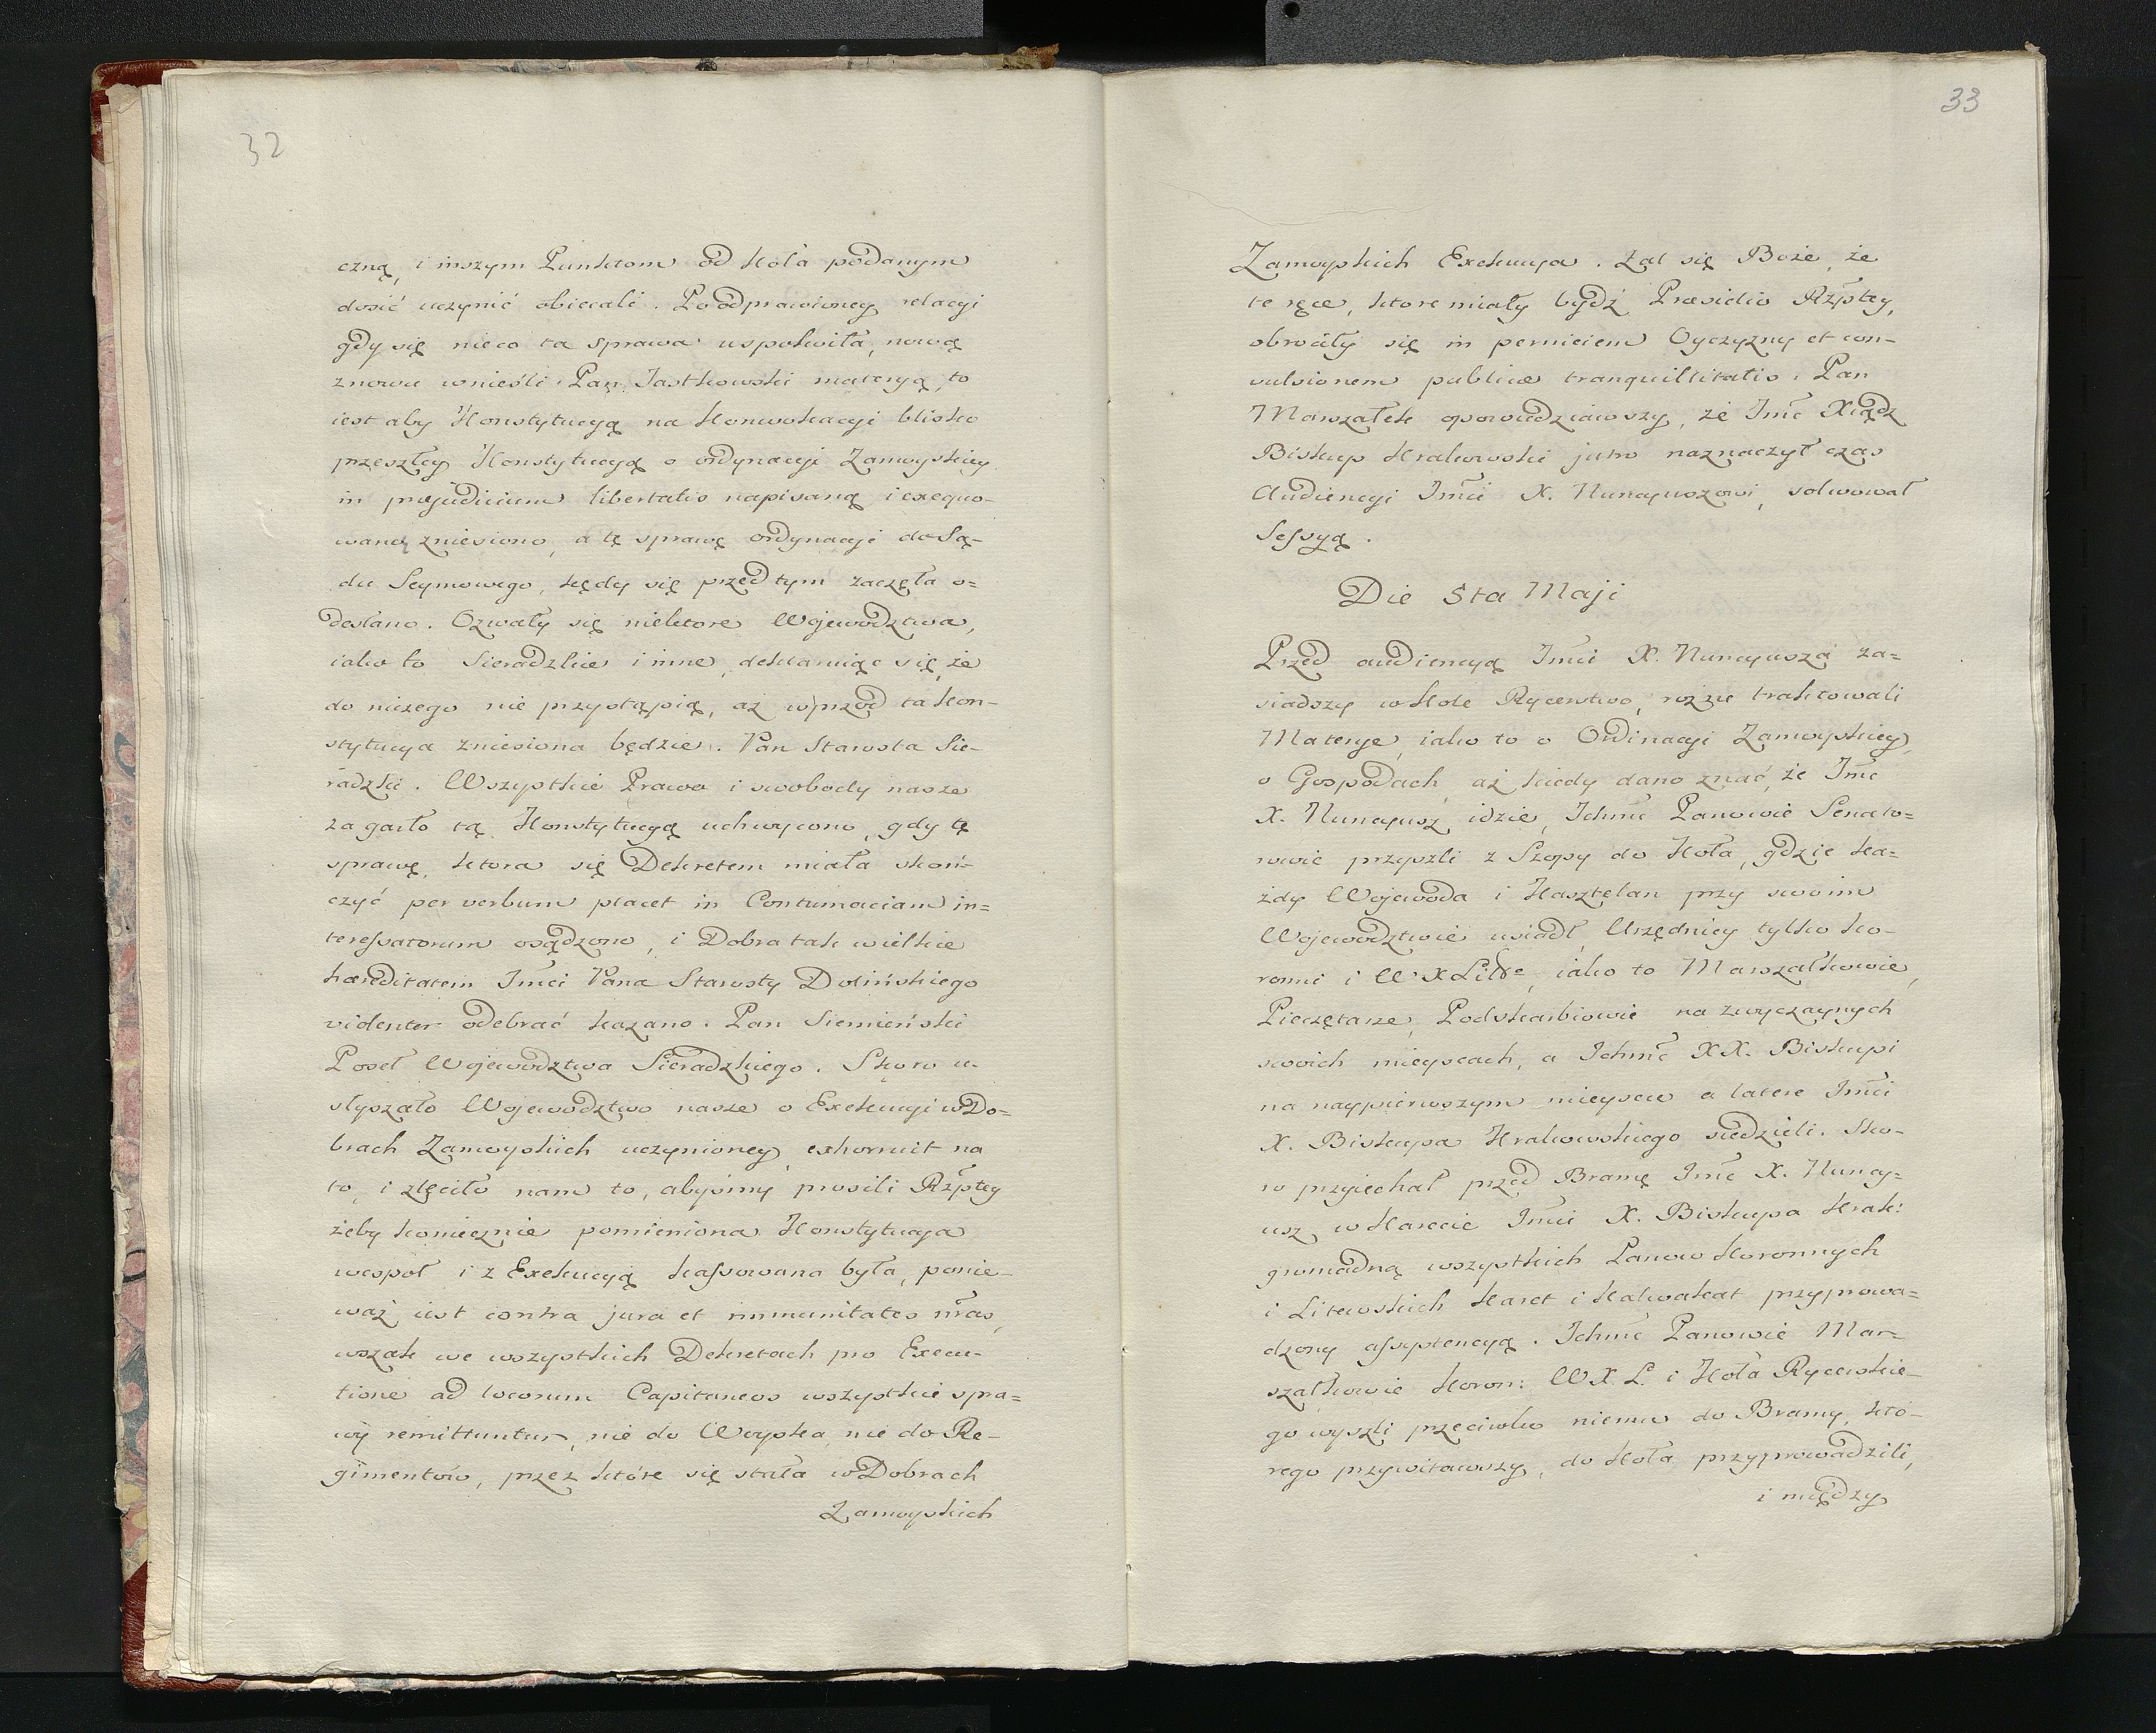 32
czną, i inszym Punktom od Koła podanym
dosić uczynić obiecali. Po odprawioney relacyi
gdy się nieco ta sprawa uspokoiła, nową
znowu wnieśli Pan Jastkowski materyą, to
iest aby Konstytucyą na Konwokacyi blisko
przeszłey Konstytucyą o ordynacyi Zamoyskiey
in præjudicium libertatis napisaną i exequo-
waną zniesiono, a tę sprawę ordynacyi do Są-
du Seymowego, kędy się przed tym zaczęła o=
desłano. Ozwały się niektore Wojewodztwa,
iako to Sieradzkie i inne, deklaruiąc się, że
do niczego nie przystąpią, aż wprzod ta Kon-
stytucya zniesiona będzie. Pan Starosta Sie-
radzki. Wszystkie Prawa i swobody nasze
za garło tą Konstytucyą uchwycono, gdy tę
sprawę, ktora się Dekretem miała skoń-
czyć per verbum placet in Contumaciam in=
teressatorum osądzono, i Dobra tak wielkie
hæreditatem Jmci Pana Starosty Dolińskiego
violenter odebrać kazano. Pan Siemieński
Poseł Wojewodztwa Sieradzkiego. Skoro u-
słyszało Wojewodztwo nasze o Exekucyi w Do=
brach Zamoyskich uczynioney, exhorruit na
to, i zleciło nam to, abyśmy prosili Rzptey
żeby koniecznie pomieniona Konstytucya
wespoł i z Exekucyą kassowana była, ponie-
waż iest contra jura et immunitates nras,
wszak we wszystkich Dekretach pro Execu-
tione ad locorum Capitaneos wszystkie spra=
wy remittuntur, nie do Woyska, nie do Re-
gimentów, przez które się stała w Dobrach
Zamoyskich
33
Zamoyskich Exekucya. Żal się Boże, że
te ręce, ktore miały bydź Præsidio Rzptey,
obrociły się in perniciem Oyczyzny et con-
vulsionem publicæ tranquillitatis. Pan
Marszałek opowiedziawszy, że Jmc Xiądz
Biskup Krakowski jutro naznaczył czas
Audiencyi Jmci X. Nuncyuszowi, solwował
Sessyą.
Die 5ta Maji
Przed audiencyą Jmci X. Nuncyusza za=
siadszy w Kole Rycerstwo, rożne traktowali
Materye, iako to o Ordinacyi Zamoyskiey,
o Gospodach, aż kiedy dano znać, że Jmc
X. Nuncyusz idzie, Ichmc Panowie Senato=
rowie przyszli z Szopy do Koła, gdzie ka=
żdy Wojewoda i Kasztelan przy swoim
Wojewodztwie usiadł, Urzędnicy tylko ko-
ronni i W X Litte, iako to Marszałkowie,
Pieczętarze, Podskarbiowie na zwyczaynych
swoich mieyscach, a Ichmc XX. Biskupi
na naypierwszym mieyscu a latere Jmci
X. Biskupa Krakowskiego siedzieli. Sko-
ro przyiechał przed Bramę Jmc X. Nuncy=
usz w Karecie Jmci X. Biskupa Krak:
gromadną wszystkich Panow Koronnych
i Litewskich Karet i Kalwakat przyprowa=
dzony assystencyą. Ichmc Panowie Mar=
szałkowie Koron: W X L. i Koła Rycerskie-
go wyszli przeciwko niemu do Bramy, któ-
rego przywitawszy, do Koła przyprowadzili,
i między